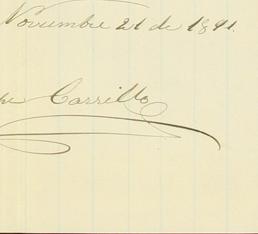 Noviembre 21 de 1891.
Carrillo